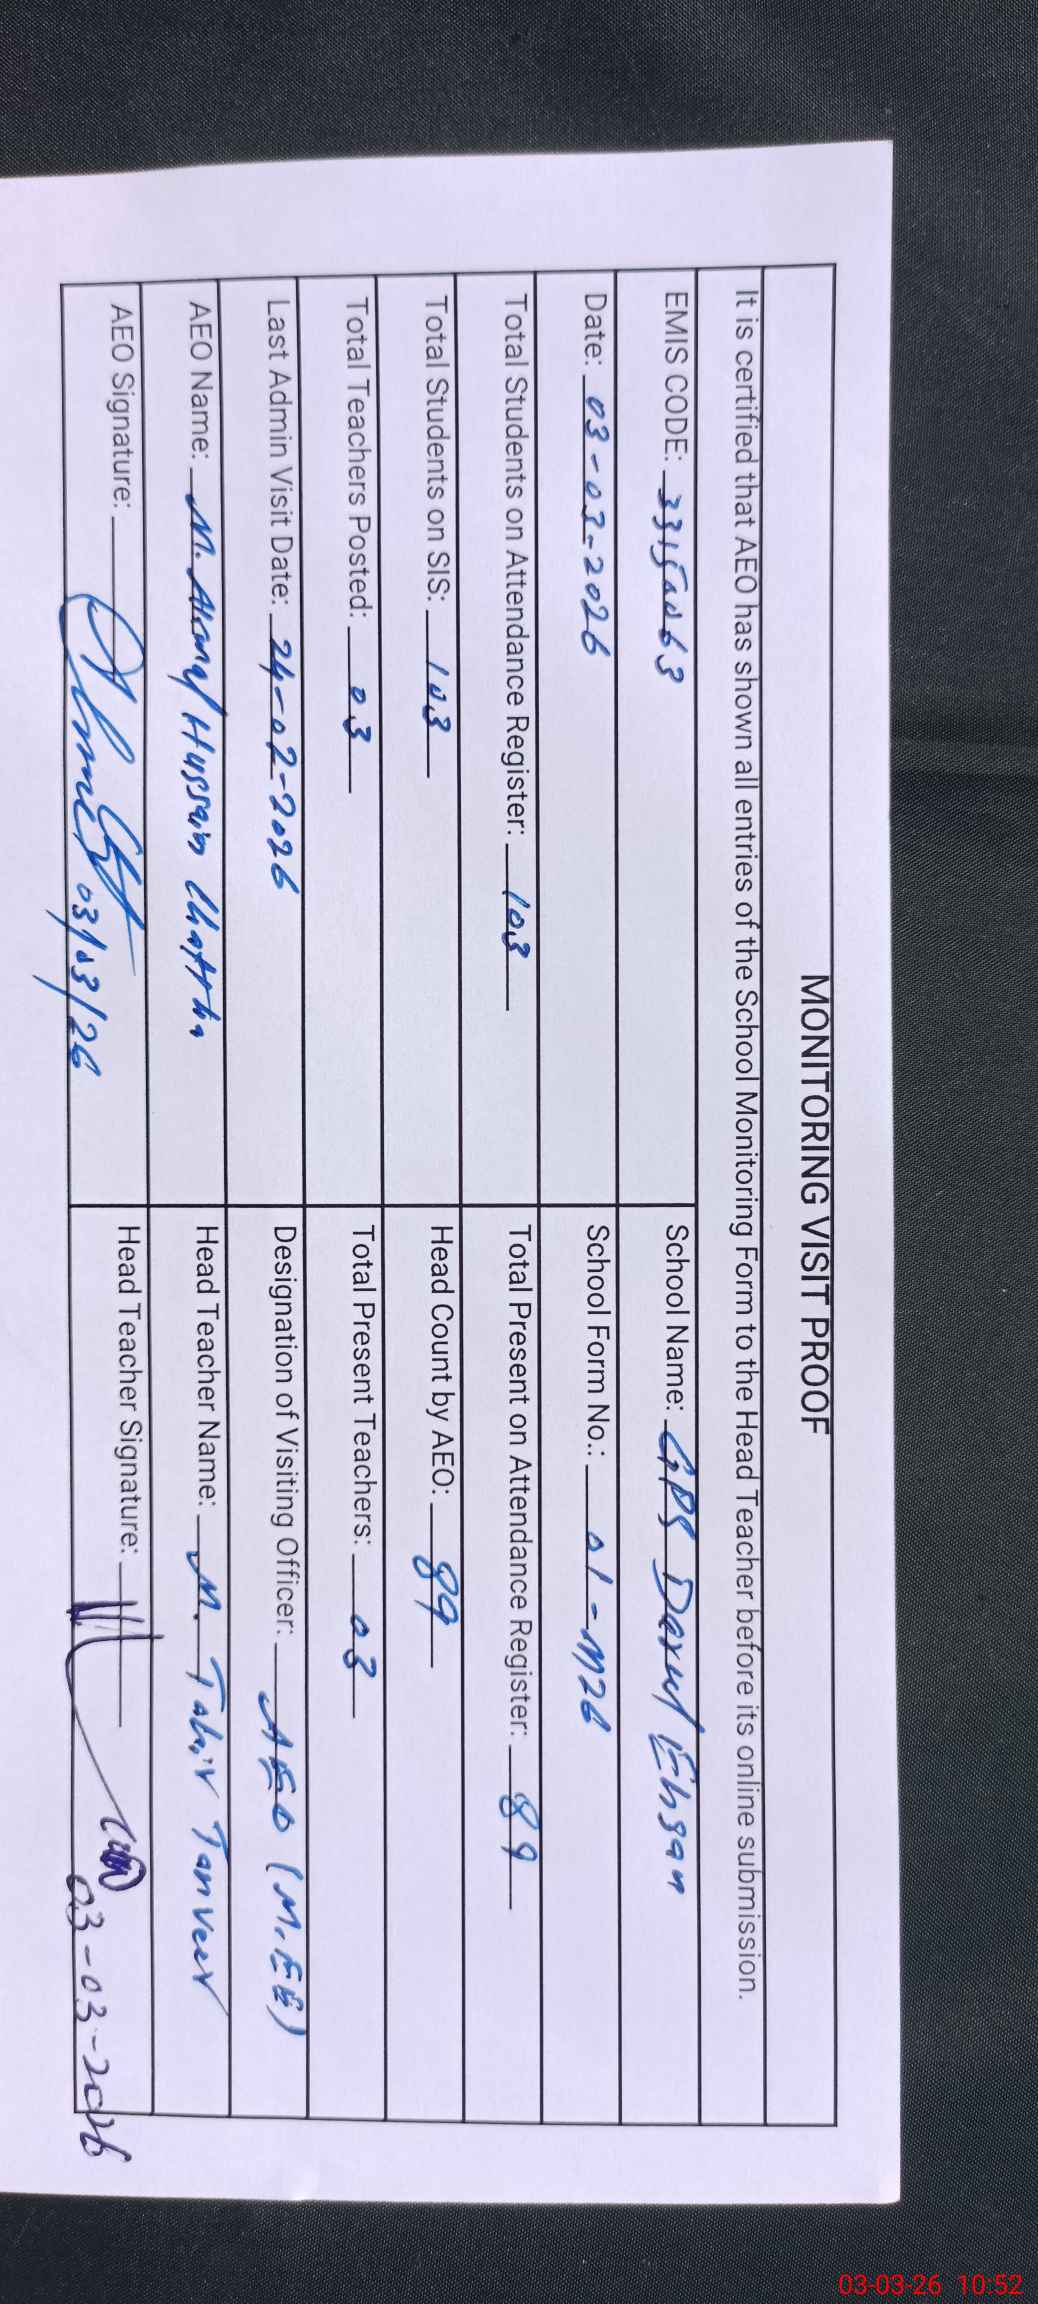 MONITORING VISIT PROOF
It is certified that AEO has shown all entries of the School Monitoring Form to the Head Teacher before its online submission.
EMIS CODE: 33150063 School Name: GPS Darul Ehsan
Date: 03-03-2026 School Form No.: 01-M26
Total Students on Attendance Register: 103 Total Present on Attendance Register: 89
Total Students on SIS: 103 Head Count by AEO: 89
Total Teachers Posted: 03 Total Present Teachers: 03
Last Admin Visit Date: 24-02-2026 Designation of Visiting Officer: AEO (M.EE)
AEO Name: M. Hussain Chattha Head Teacher Name: M. Tahir Tanveer
AEO Signature: 03/03/26 Head Teacher Signature: 03-03-2026
03-03-26 10:52